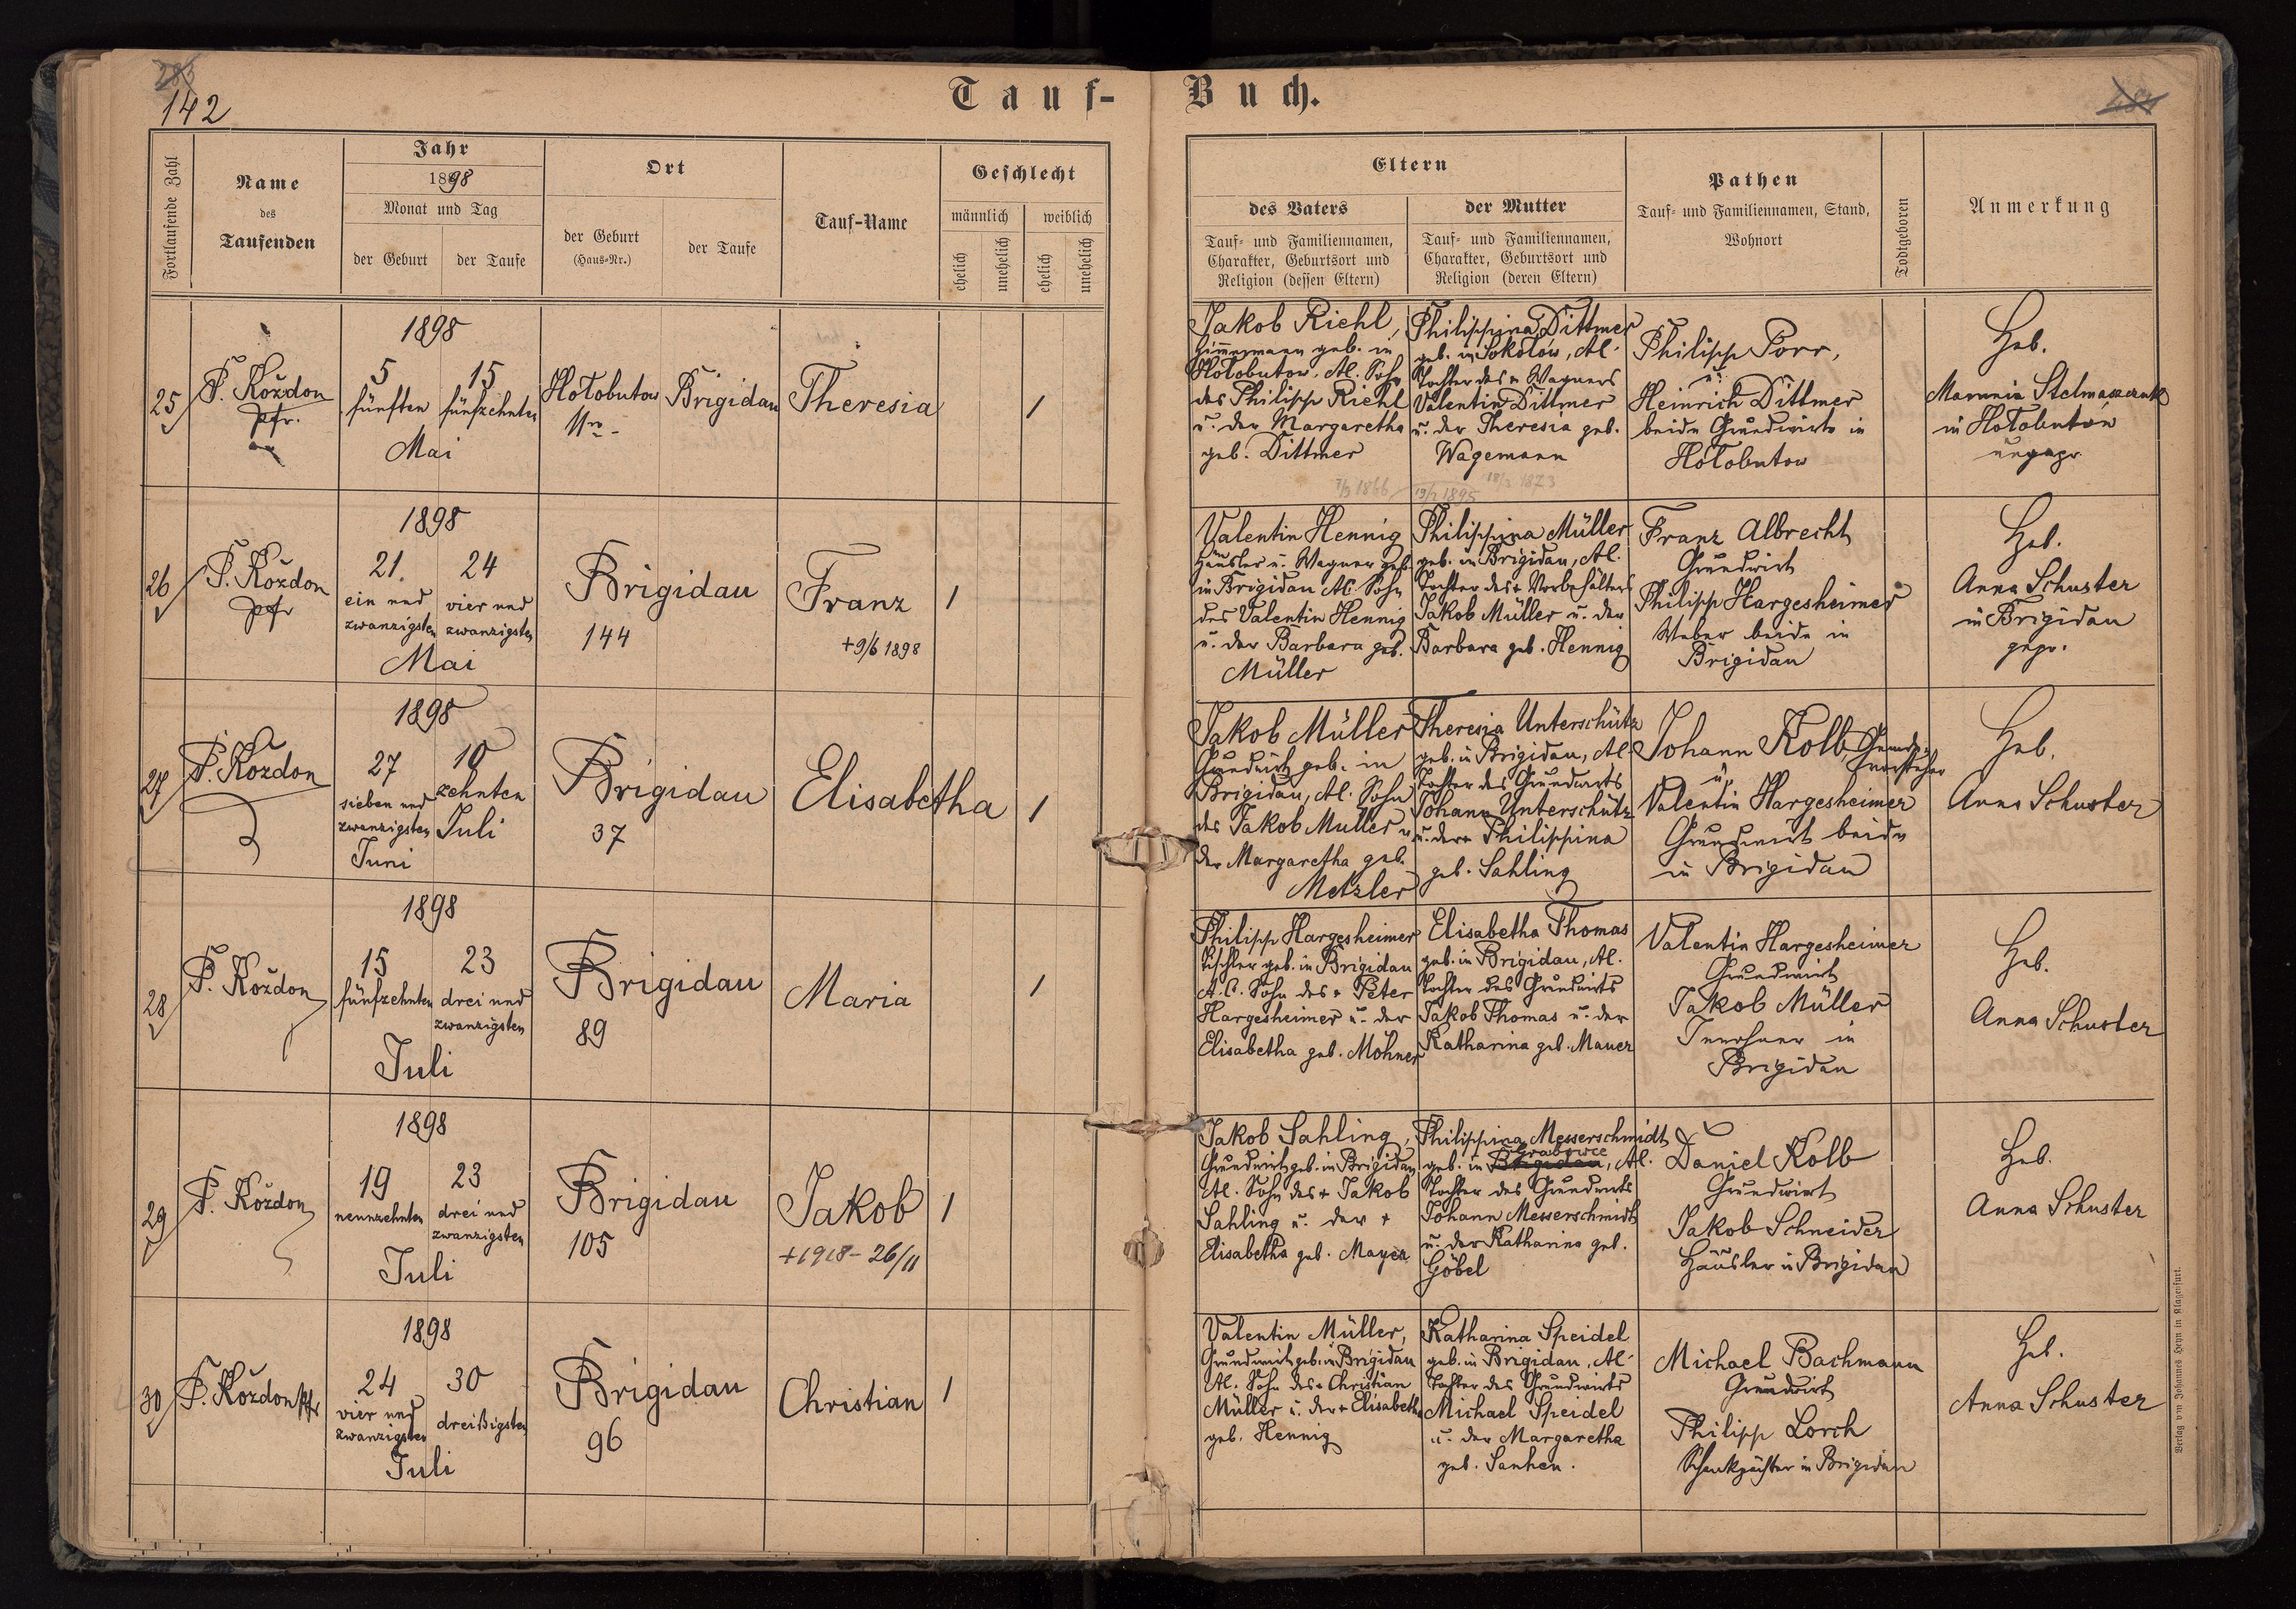 283
142
Tauf-
Buch.
484
Fortlaufende Zahl
Name
des
Taufenden
Jahr
1898
Monat und Tag
der Geburt
der Taufe
Ort
der Geburt
(Haus-Nr.)
der Taufe
Tauf-Name
Geschlecht
männlich
weiblich
ehelich
unehelich
ehelich
unehelich
Eltern
des Vaters
Tauf- und Familiennamen,
Charakter, Geburtsort und
Religion (dessen Eltern)
der Mutter
Tauf- und Familiennamen,
Charakter, Geburtsort und
Religion (deren Eltern)
Pathen
Tauf- und Familiennamen, Stand,
Wohnort
Todtgeboren
Anmerkung
25
P. Koždon
pfr.
1898
5
fünften
15
fünfzehnten
Mai
Hołobutow
Nro -
Brigidau
Theresia
1
Jakob Riehl,
Zimmermann geb. in
Hołobutow, Al. Sohn
des Philipp Riehl
u. der Margaretha
geb. Dittmer
7/3 1866
Philippina Dittmer
geb. in Sokołów, Al.
Tochter des + Wagners
Valentin Dittmer
u. der Theresia geb.
Wagemann
18/3 1873
19/2 1895
Philipp Porr,
u.
Heinrich Dittmer
beide Grundwirte in
Hołobutow
Heb.
Marunia Stelmaszczuk
in Hołobutów
ungepr.
26
P. Koždon
pfr
1898
21.
ein und
zwanzigsten
24
vier und
zwanzigsten
Mai
Brigidau
144
Franz
+ 9/6 1898
1
Valentin Hennig
Häusler u. Wagner geb.
in Brigidau Al. Sohn
des Valentin Hennig
u. der Barbara geb.
Müller
Philippina Müller
geb. in Brigidau, Al.
Tochter des + Vorbehälters
Jakob Müller u. der
Barbara geb. Hennig
Franz Albrecht
Grundwirt
Philipp Hargesheimer
Weber beide in
Brigidau
Heb.
Anna Schuster
in Brigidau
gepr.
27
P. Koždon
1898
27
sieben und
zwanzigsten
Juni
10
zehnten
Juli
Brigidau
37
Elisabetha
1
Jakob Müller
Grundwirt geb. in
Brigidau, Al. Sohn
des Jakob Müller u
der Margaretha geb.
Metzler
Theresia Unterschütz
geb. in Brigidau, Al
Tochter des Grundwirts
Johann Unterschütz
u. der + Philippina
geb. Sahling
Johann Kolb, Gemeinde-
vorsteher
u.
Valentin Hargesheimer
Grundwirt beide
in Brigidau
Heb.
Anna Schuster
28
P. Koždon
1898
15
fünfzehnten
23
drei und
zwanzigsten
Juli
Brigidau
89
Maria
1
Philipp Hargesheimer
Tischler geb. in Brigidau
A.C. Sohn des + Peter
Hargesheimer u. der
Elisabetha geb. Mohner
Elisabetha Thomas
geb. in Brigidau, Al.
Tochter des Grundwirts
Jakob Thomas u. der
Katharina geb. Mauer
Valentin Hargesheimer
Grundwirt
Jakob Müller
Inwohner in
Brigidau
Heb.
Anna Schuster
29
P. Koždon
1898
19
neunzehnten
23
drei und
zwanzigsten
Juli
Brigidau
105
Jakob
+ 1918 - 26/11
1
Jakob Sahling,
Grundwirt geb. in Brigidau
Al. Sohn des + Jakob
Sahling u. der +
Elisabetha geb. Mayer
Philippina Messerschmidt
Grabowce
geb. in Brigidau, Al.
Tochter des Grundwirts
Johann Messerschmidt
u. der Katharina geb.
Göbel
Daniel Kolb
Grundwirt
Jakob Schneider
Häusler in Brigidau
Heb.
Anna Schuster
30
P. Koždon pfr
1898
24
vier und
zwanzigsten
30
dreißigsten
Juli
Brigidau
96
Christian
1
Valentin Müller,
Grundwirt geb. in Brigidau
Al. Sohn des + Christian
Müller u. der + Elisabetha
geb. Hennig
Katharina Speidel
geb. in Brigidau, Al.
Tochter des Grundwirts
Michael Speidel
u. der Margaretha
geb. Sanhen.
Michael Bachmann
Grundwirt
Philipp Lorch
Schenkpächter in Brigidau
Heb.
Anna Schuster
Verlag von Johannes Heyn in Klagenfurt.